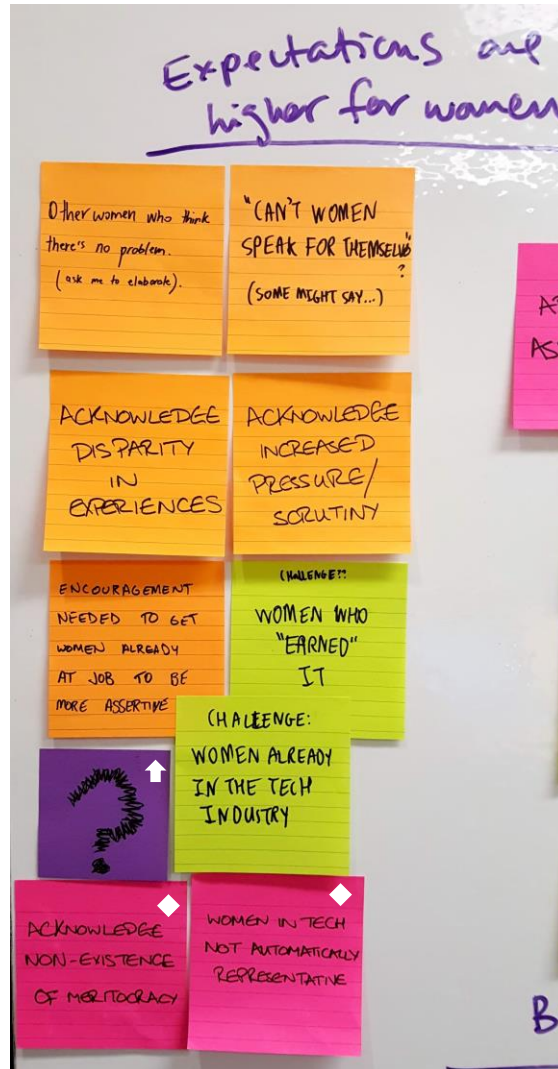 Expectations are
higher for women
Other women who think
there's no problem.
(ask me to elaborate).
"CAN'T WOMEN
SPEAK FOR THEMSELVES"
?
(SOME MIGHT SAY...)
ACKNOWLEDGE
DISPARITY
IN
EXPERIENCES
ACKNOWLEDGE
INCREASED
PRESSURE/
SCRUTINY
ENCOURAGEMENT
NEEDED TO GET
WOMEN ALREADY
AT JOB TO BE
MORE ASSERTIVE
CHALLENGE??
WOMEN WHO
"EARNED"
IT
CHALLENGE:
WOMEN ALREADY
IN THE TECH
INDUSTRY
?
ACKNOWLEDGE
NON-EXISTENCE
OF MERITOCRACY
WOMEN IN TECH
NOT AUTOMATICALLY
REPRESENTATIVE
B